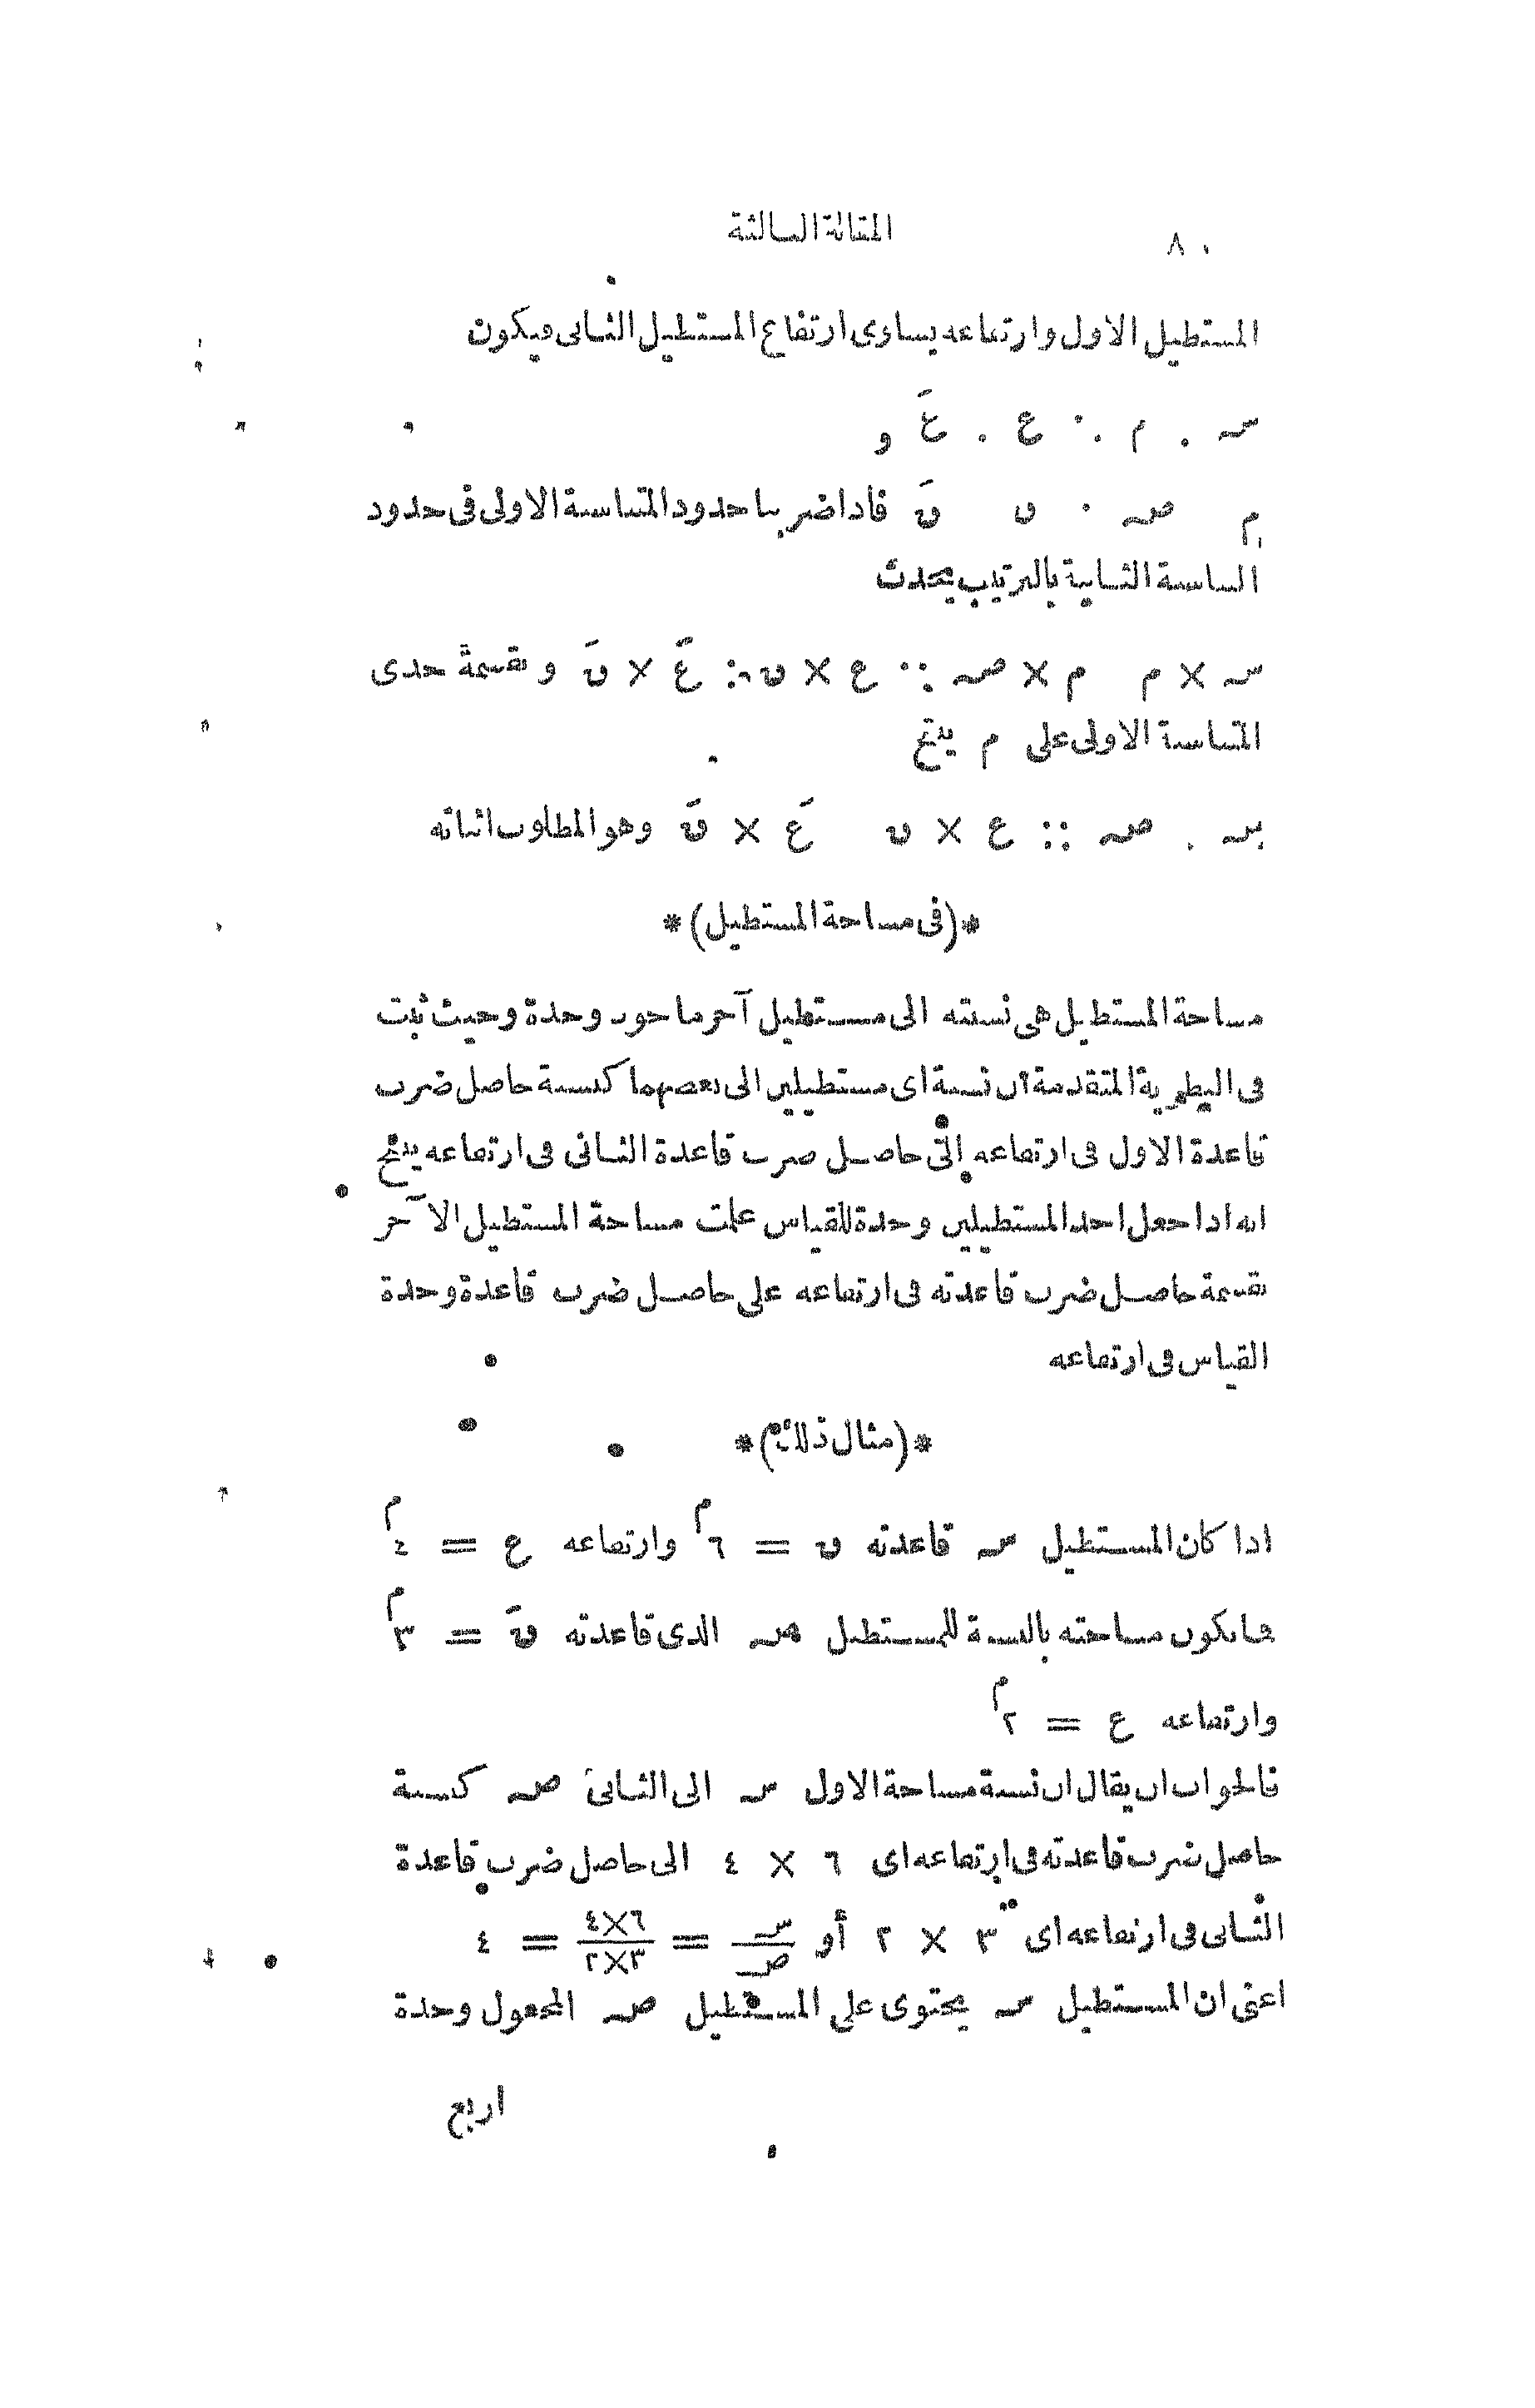 ٨٠
المقالة الثالثة
المستطيل الاول وارتفاعه يساوى ارتفاع المستطيل الثانى فيكون
سہ : م :: ع : عَ و
م : صہ :: ں : قَ فاذا ضربنا حدود المتناسبة الاولى فى حدود
المناسبة الثانية بالترتيب يحدث
سہ × م : م × صہ :: ع × ں : عَ × قَ وبقسمة حدى
المتناسبة الاولى على م ينتج
سہ : صہ :: ع × ں : عَ × قَ وهو المطلوب اثباته
*(فى مساحة المستطيل)*
مساحة المستطيل هى نسبته الى مستطيل آخر مأخوذ وحدة وحيث ثبت
فى النظرية المتقدمة أن نسبة اى مستطيلين الى بعضهما كنسبة حاصل ضرب
قاعدة الاول فى ارتفاعه الى حاصل ضرب قاعدة الثانى فى ارتفاعه ينتج
انه اذا جعل احد المستطيلين وحدة للقياس علمت مساحة المستطيل الآخر
بقسمة حاصل ضرب قاعدته فى ارتفاعه على حاصل ضرب قاعدة وحدة
القياس فى ارتفاعه
*(مثال ذلك)*
اذا كان المستطيل سہ قاعدته ں = ٦م وارتفاعه ع = ٤م
فما يكون مساحته بالنسبة للمستطيل صہ الذى قاعدته قَ = ٣م
وارتفاعه ع = ٢م
فالجواب ان يقال ان نسبة مساحة الاول سہ الى الثانى صہ كنسبة
حاصل ضرب قاعدته فى ارتفاعه اى ٦ × ٤ الى حاصل ضرب قاعدة
الثانى فى ارتفاعه اى ٣ × ٢ أو سہ/صہ = ٦×٤/٣×٢ = ٤
اعنى ان المستطيل سہ يحتوى على المستطيل صہ المجعول وحدة
اربع